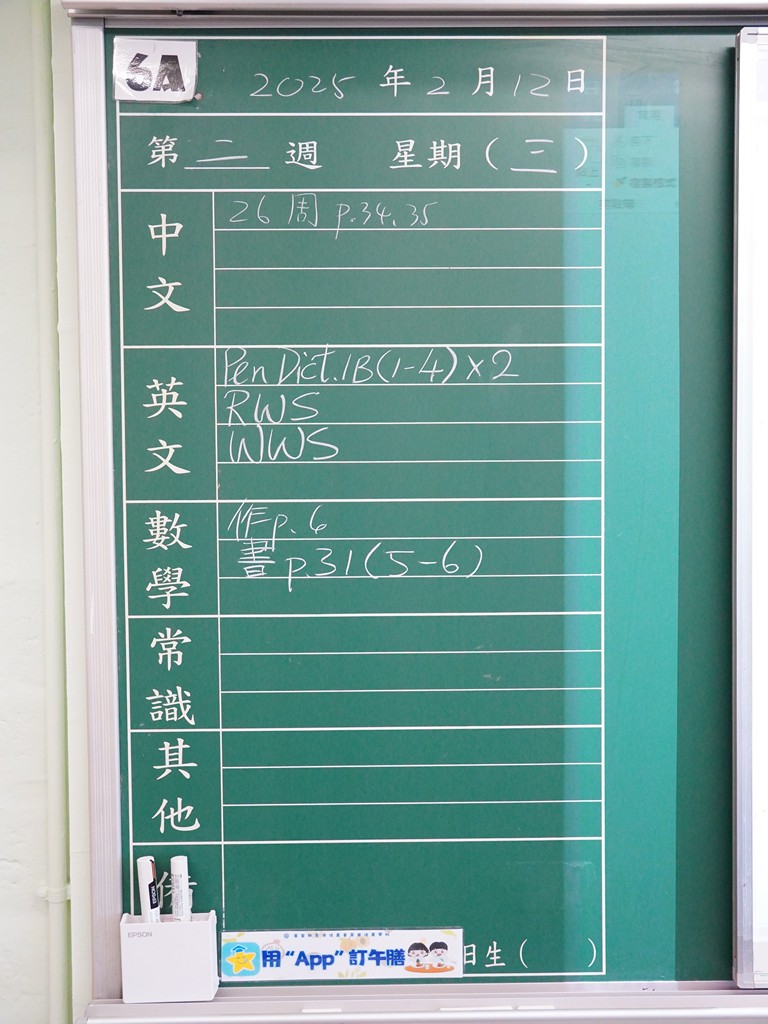 6A
2025 年 2 月 12 日
第 二 週 星期 ( 三 )
中文
26 周 p.34, 35
英文
Pen Dict. 1B (1-4) x 2
RWS
WWS
數學
作 p. 6
書 p.31 (5-6)
常識
其他
EPSON
用 “App” 訂午膳
日生 ( )